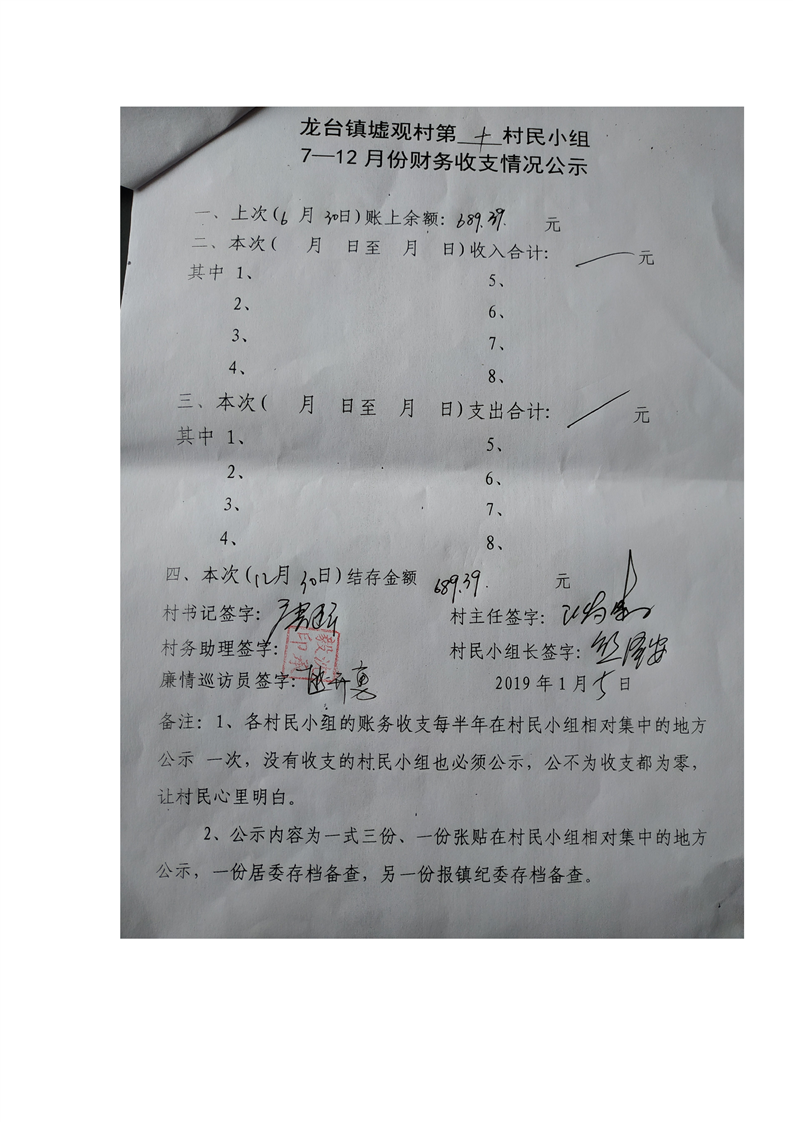 龙台镇墟观村第十村民小组
7—12月份财务收支情况公示
一、上次(6月30日)账上余额: 689.39. 元
二、本次( 月 日至 月 日)收入合计: — 元
其中 1、 5、
2、 6、
3、 7、
4、 8、
三、本次( 月 日至 月 日)支出合计: / 元
其中 1、 5、
2、 6、
3、 7、
4、 8、
四、本次(12月30日)结存金额 689.39. 元
村书记签字: 村主任签字:
村务助理签字: 村民小组长签字:
廉情巡访员签字: 2019年1月5日
备注: 1、各村民小组的账务收支每半年在村民小组相对集中的地方
公示 一次,没有收支的村民小组也必须公示,公不为收支都为零,
让村民心里明白。
2、公示内容为一式三份、一份张贴在村民小组相对集中的地方
公示,一份居委存档备查,另一份报镇纪委存档备查。